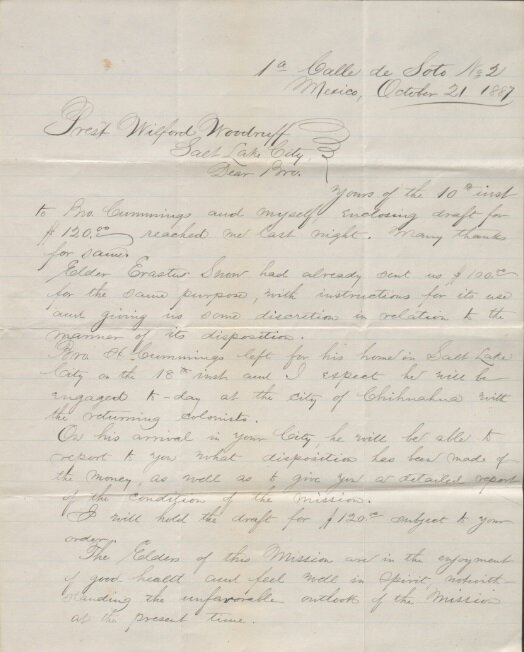 1ª Calle de Soto No 2
Mexico, October 21 1887
Prest Wilford Woodruff
Salt Lake City,
Dear Bro.
Yours of the 10th inst
to Bro. Cummings and myself enclosing draft for
$120.00 reached me last night. Many thanks
for same.
Elder Erastus Snow had already sent us $100.00
for the same purpose, with instructions for its use
and giving us some discretion in relation to the
manner of its disposition.
Bro. Cummings left for his home in Salt Lake
City on the 18th inst and I expect he will be
engaged to-day at the city of Chihuahua with
the returning colonists.
On his arrival in your City, he will be able to
report to you what disposition has been made of
the money, as well as to give you a detailed report
of the condition of the mission.
I will hold the draft for $120.00 subject to your
order.
The Elders of this Mission are in the enjoyment
of good health and feel well in spirit, notwith-
standing the unfavorable outlook of the Mission
at the present time.